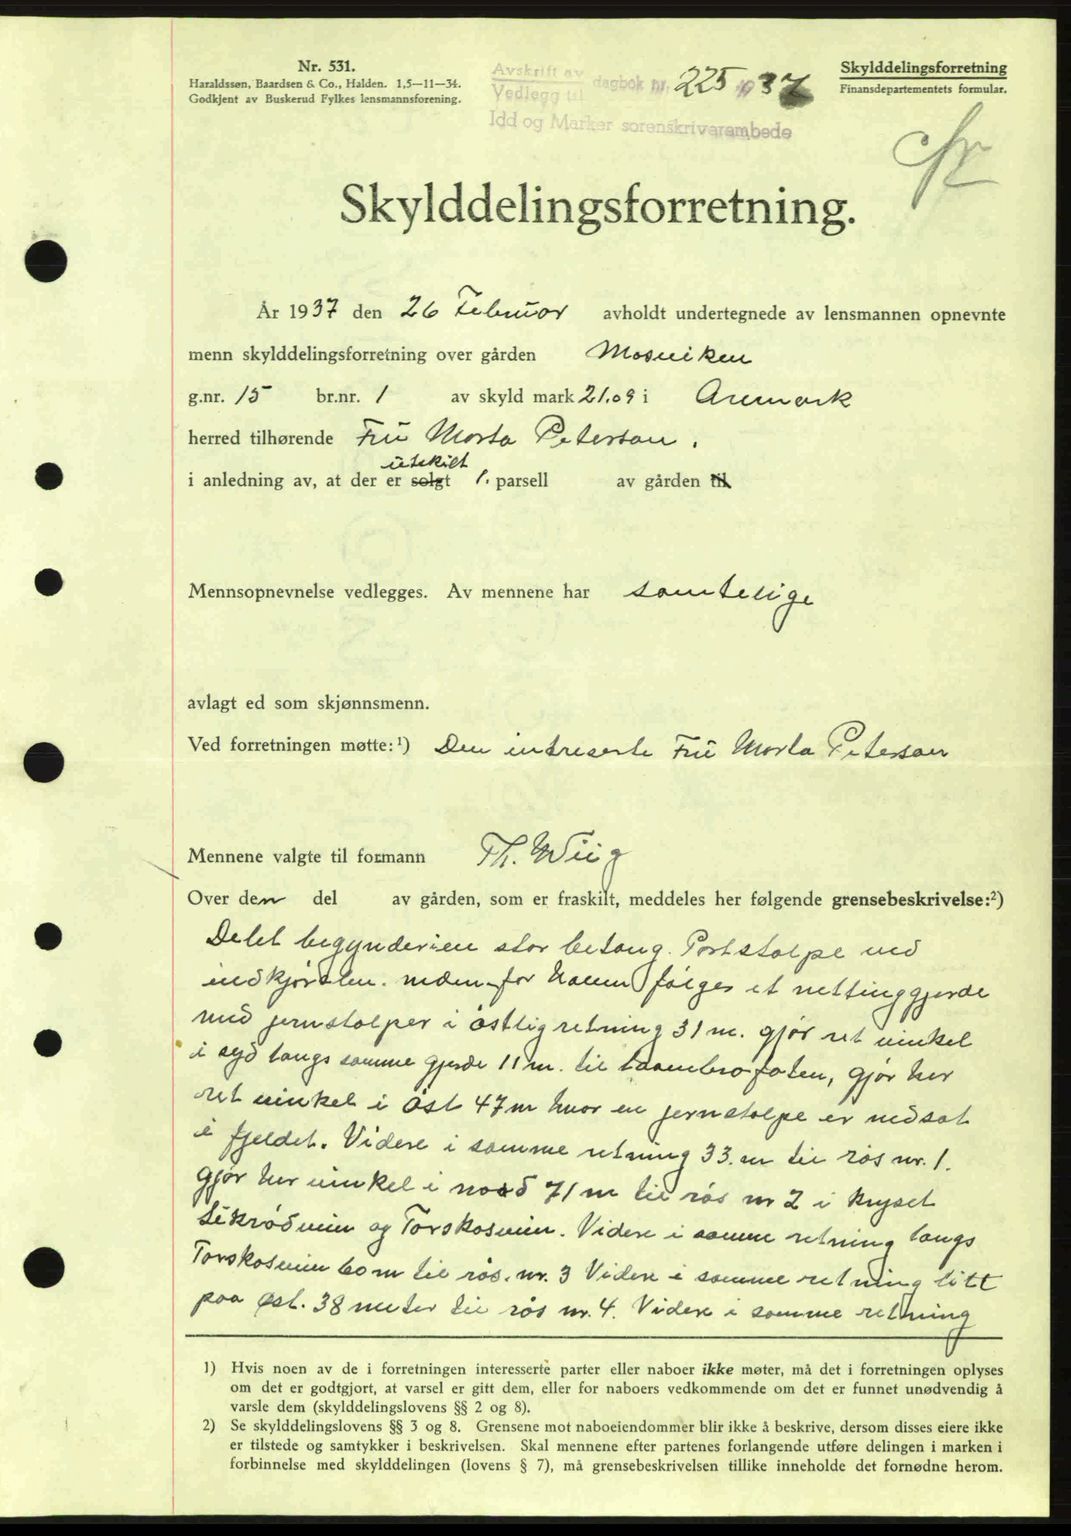 Nr. 531.
Haraldssøn, Baardsen & Co., Halden. 1,5—11—34.
Godkjent av Buskerud Fylkes lensmannsforening.
Avskrift av
Vedlegg til dagbok nr. 225 1937
Idd og Marker sorenskriverembede
Skylddelingsforretning
Finansdepartementets formular.
Skylddelingsforretning.
År 1937 den 26 Februar avholdt undertegnede av lensmannen opnevnte
menn skylddelingsforretning over gården Mosviken
g.nr. 15 br.nr. 1 av skyld mark 21.09 i Aremark
herred tilhørende Fru Marta Peterson.
utskilt
i anledning av, at der er solgt 1. parsell av gården til
Mennsopnevnelse vedlegges. Av mennene har samtelige
avlagt ed som skjønnsmenn.
Ved forretningen møtte:¹) Den intreserte Fru Marta Peterson
Mennene valgte til formann Th. Wiig
Over den del av gården, som er fraskilt, meddeles her følgende grensebeskrivelse:²)
Delet begynder i en stor betong. Portstolpe ved
indkjørselen. nedenfor følges et nettinggjerde
med jernstolper i østlig retning 31 m. gjør ret vinkel
i syd langs samme gjerde 11 m. til gjør her
ret vinkel i øst 47 m hvor en jernstolpe er nedsat
i fjeldet. Videre i samme retning 33. m til røs nr. 1.
gjør her vinkel i nord 71 m til røs nr 2 i kryset
og Torskosveien. Videre i samme retning langs
Torskosveien 60 m til røs. nr. 3 Videre i samme retning litt
paa øst. 38 meter til røs nr. 4. Videre i samme retning
1) Hvis noen av de i forretningen interesserte parter eller naboer ikke møter, må det i forretningen oplyses
om det er godtgjort, at varsel er gitt dem, eller for naboers vedkommende om det er funnet unødvendig å
varsle dem (skylddelingslovens §§ 2 og 8).
2) Se skylddelingslovens §§ 3 og 8. Grensene mot naboeiendommer blir ikke å beskrive, dersom disses eiere ikke
er tilstede og samtykker i beskrivelsen. Skal mennene efter partenes forlangende utføre delingen i marken i
forbinnelse med skylddelingen (lovens § 7), må grensebeskrivelsen tillike inneholde det fornødne herom.